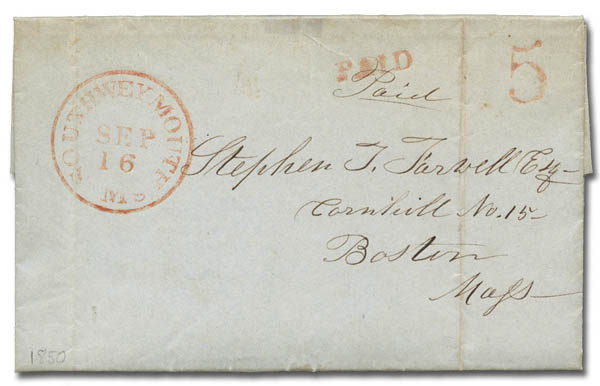 PAID
5
Paid
SOUTH WEYMOUTH
SEP
16
MS
Stephen T. Farwell Esq
Cornhill No. 15
Boston
Mass
1850